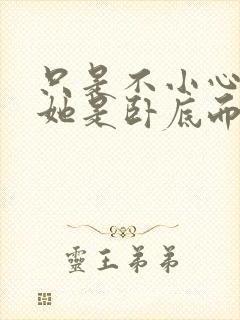 只是不小心
她是卧底而
靈王弟弟